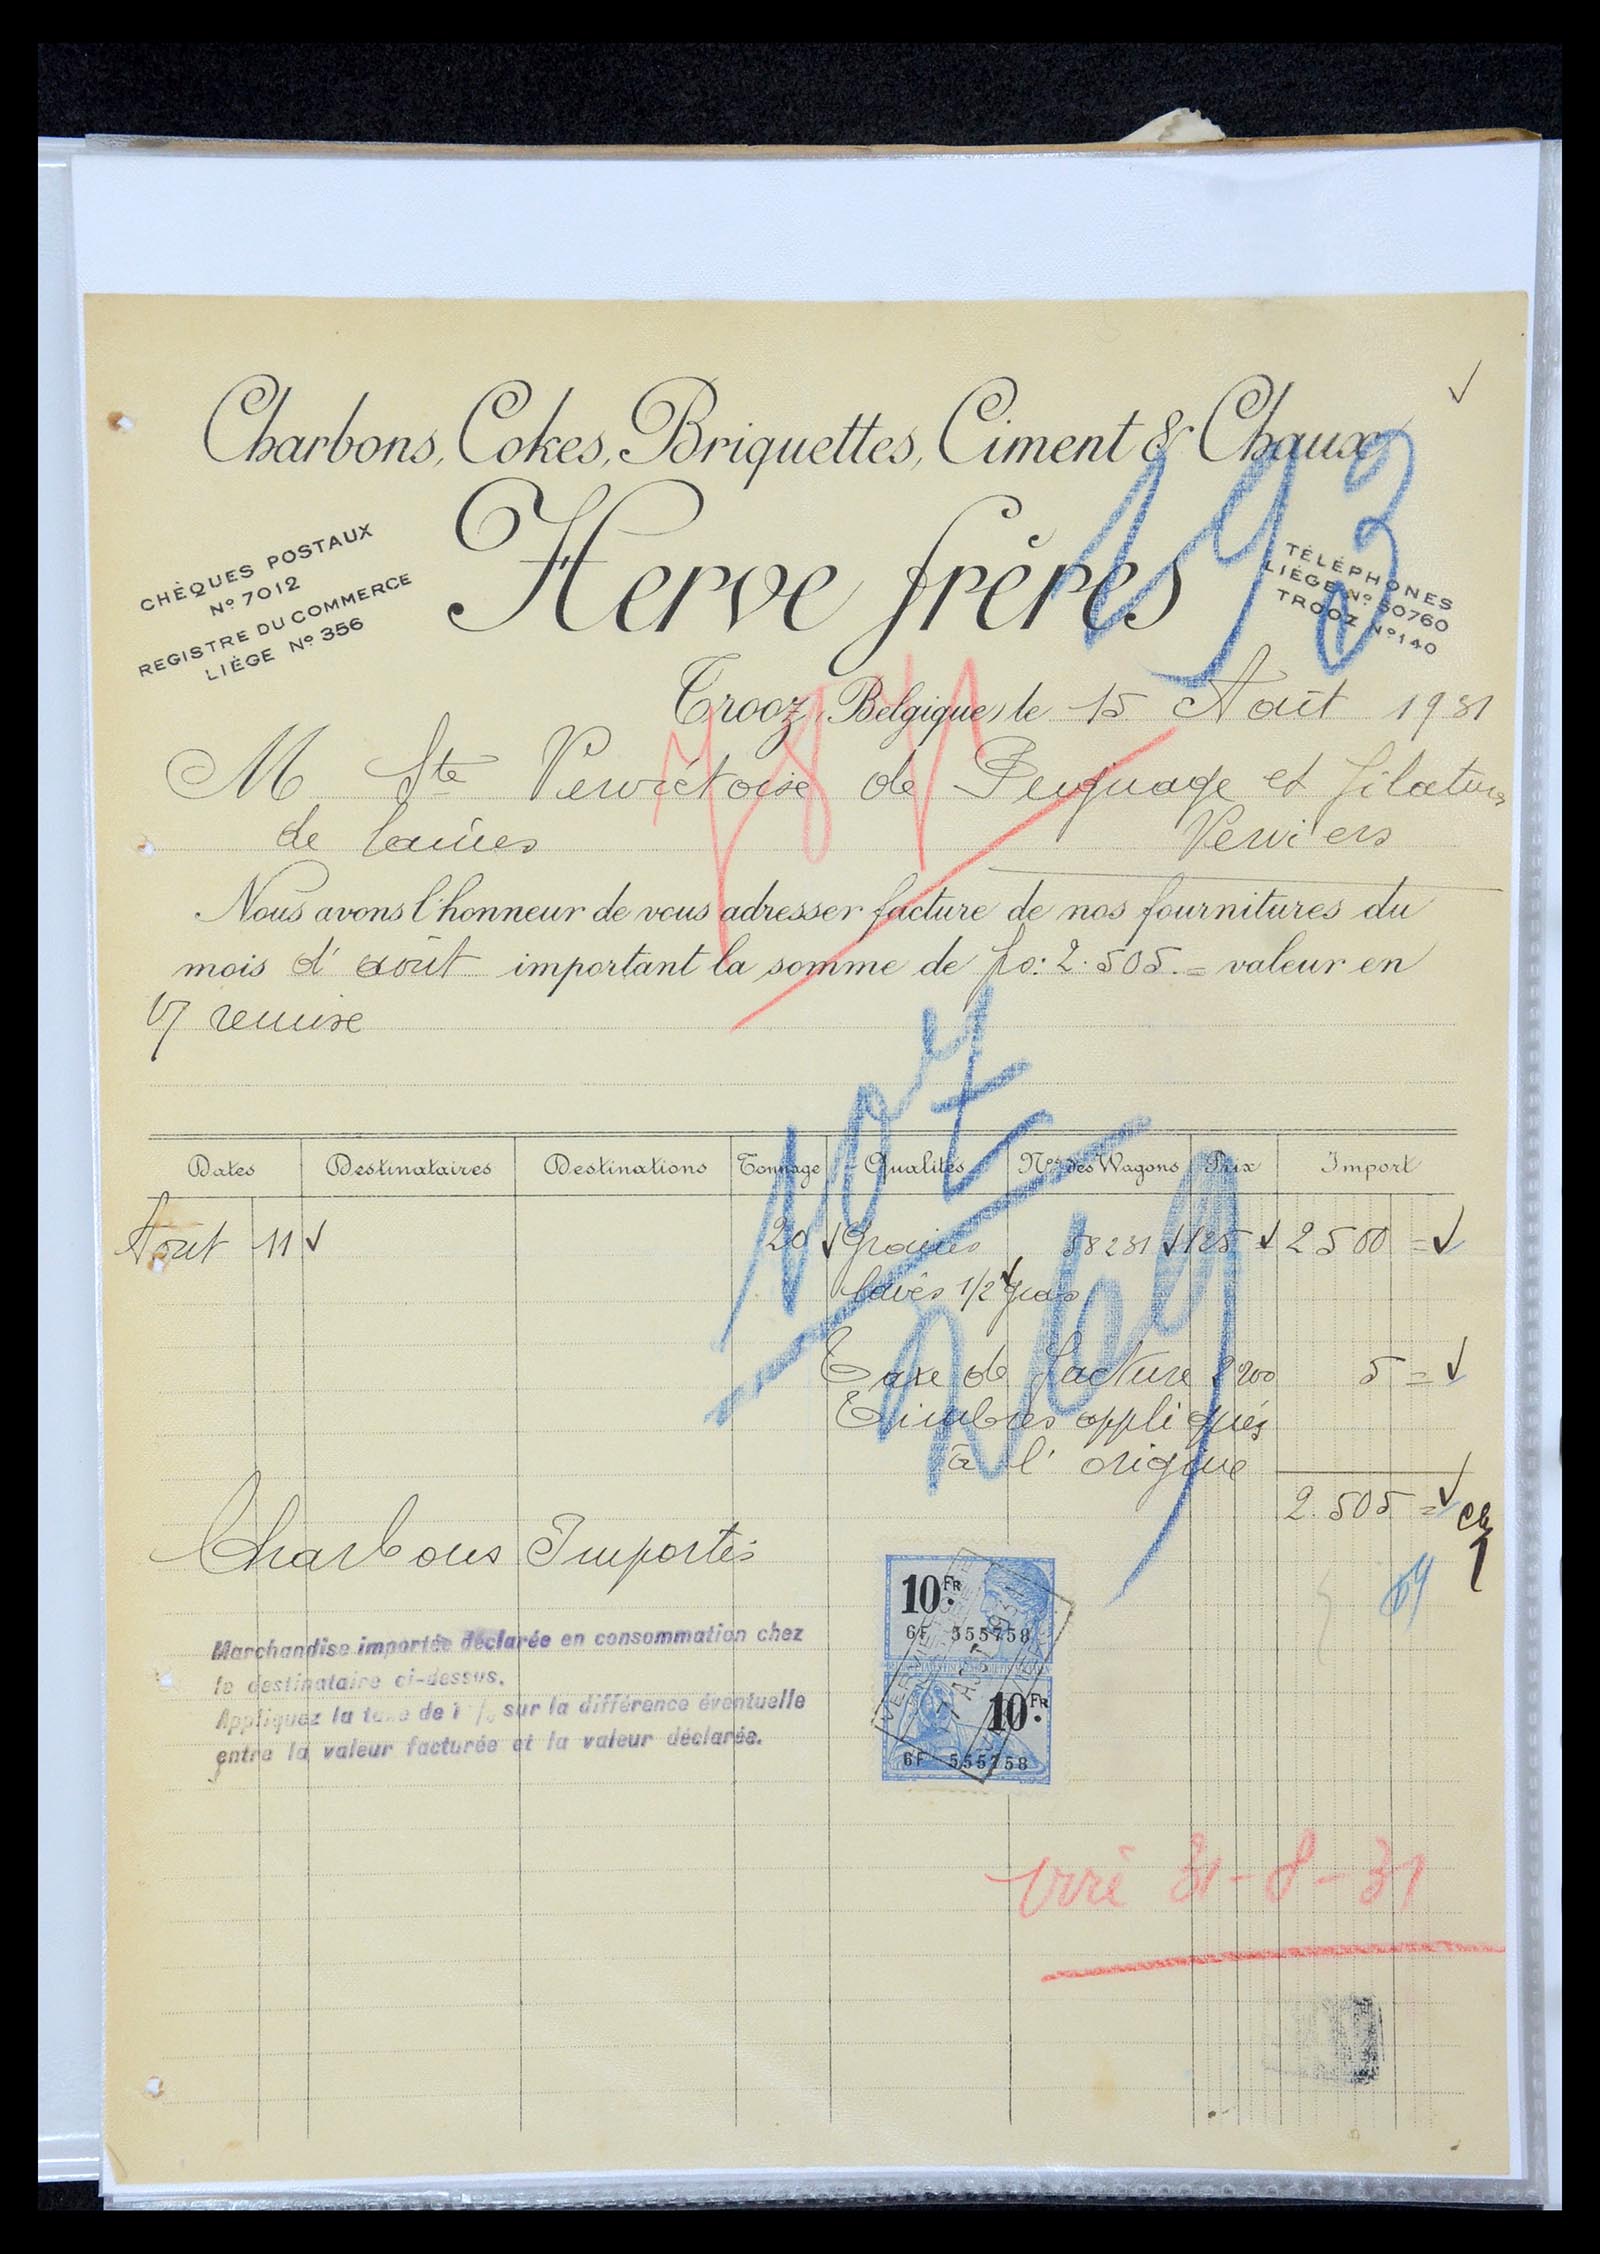 Charbons, Cokes, Briquettes, Ciment & Chaux
Herve frères
CHÈQUES POSTAUX
Nº 7012
REGISTRE DU COMMERCE
LIÈGE Nº 356
TÉLÉPHONES
LIÈGE Nº 50760
TROOZ Nº 140
193
Trooz, Belgique, le 15 Août 1931
M Sté Verviétoise de Peignage et filature
de laines Verviers
Nous avons l'honneur de vous adresser facture de nos fournitures du
mois d' août important la somme de frs: 2.505.= valeur en
remise
107
269
Dates Destinataires Destinations Tonnage Qualités Nos des Wagons Prix Import
Août 11 20 Graines 58231 125 2500 =
lavés 1/2 gras
Taxe de facture 2 ‰ 5 =
Timbres appliqués
à l' origine
2.505 =
Charbons Importés
Marchandise importée déclarée en consommation chez
le destinataire ci-dessus.
Appliquez la taxe de 1 % sur la différence éventuelle
entre la valeur facturée et la valeur déclarée.
10 FR
6F 555758
10 FR
6F 555758
31-8-31